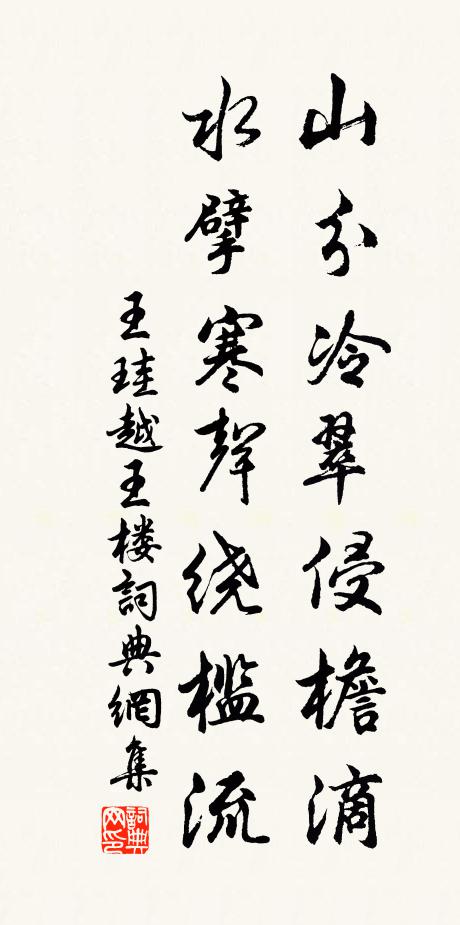 山分冷翠侵檐滴
水擘寒聲绕槛流
王珪越王楼詞典網集
詞典网印